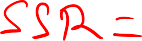 SSR =